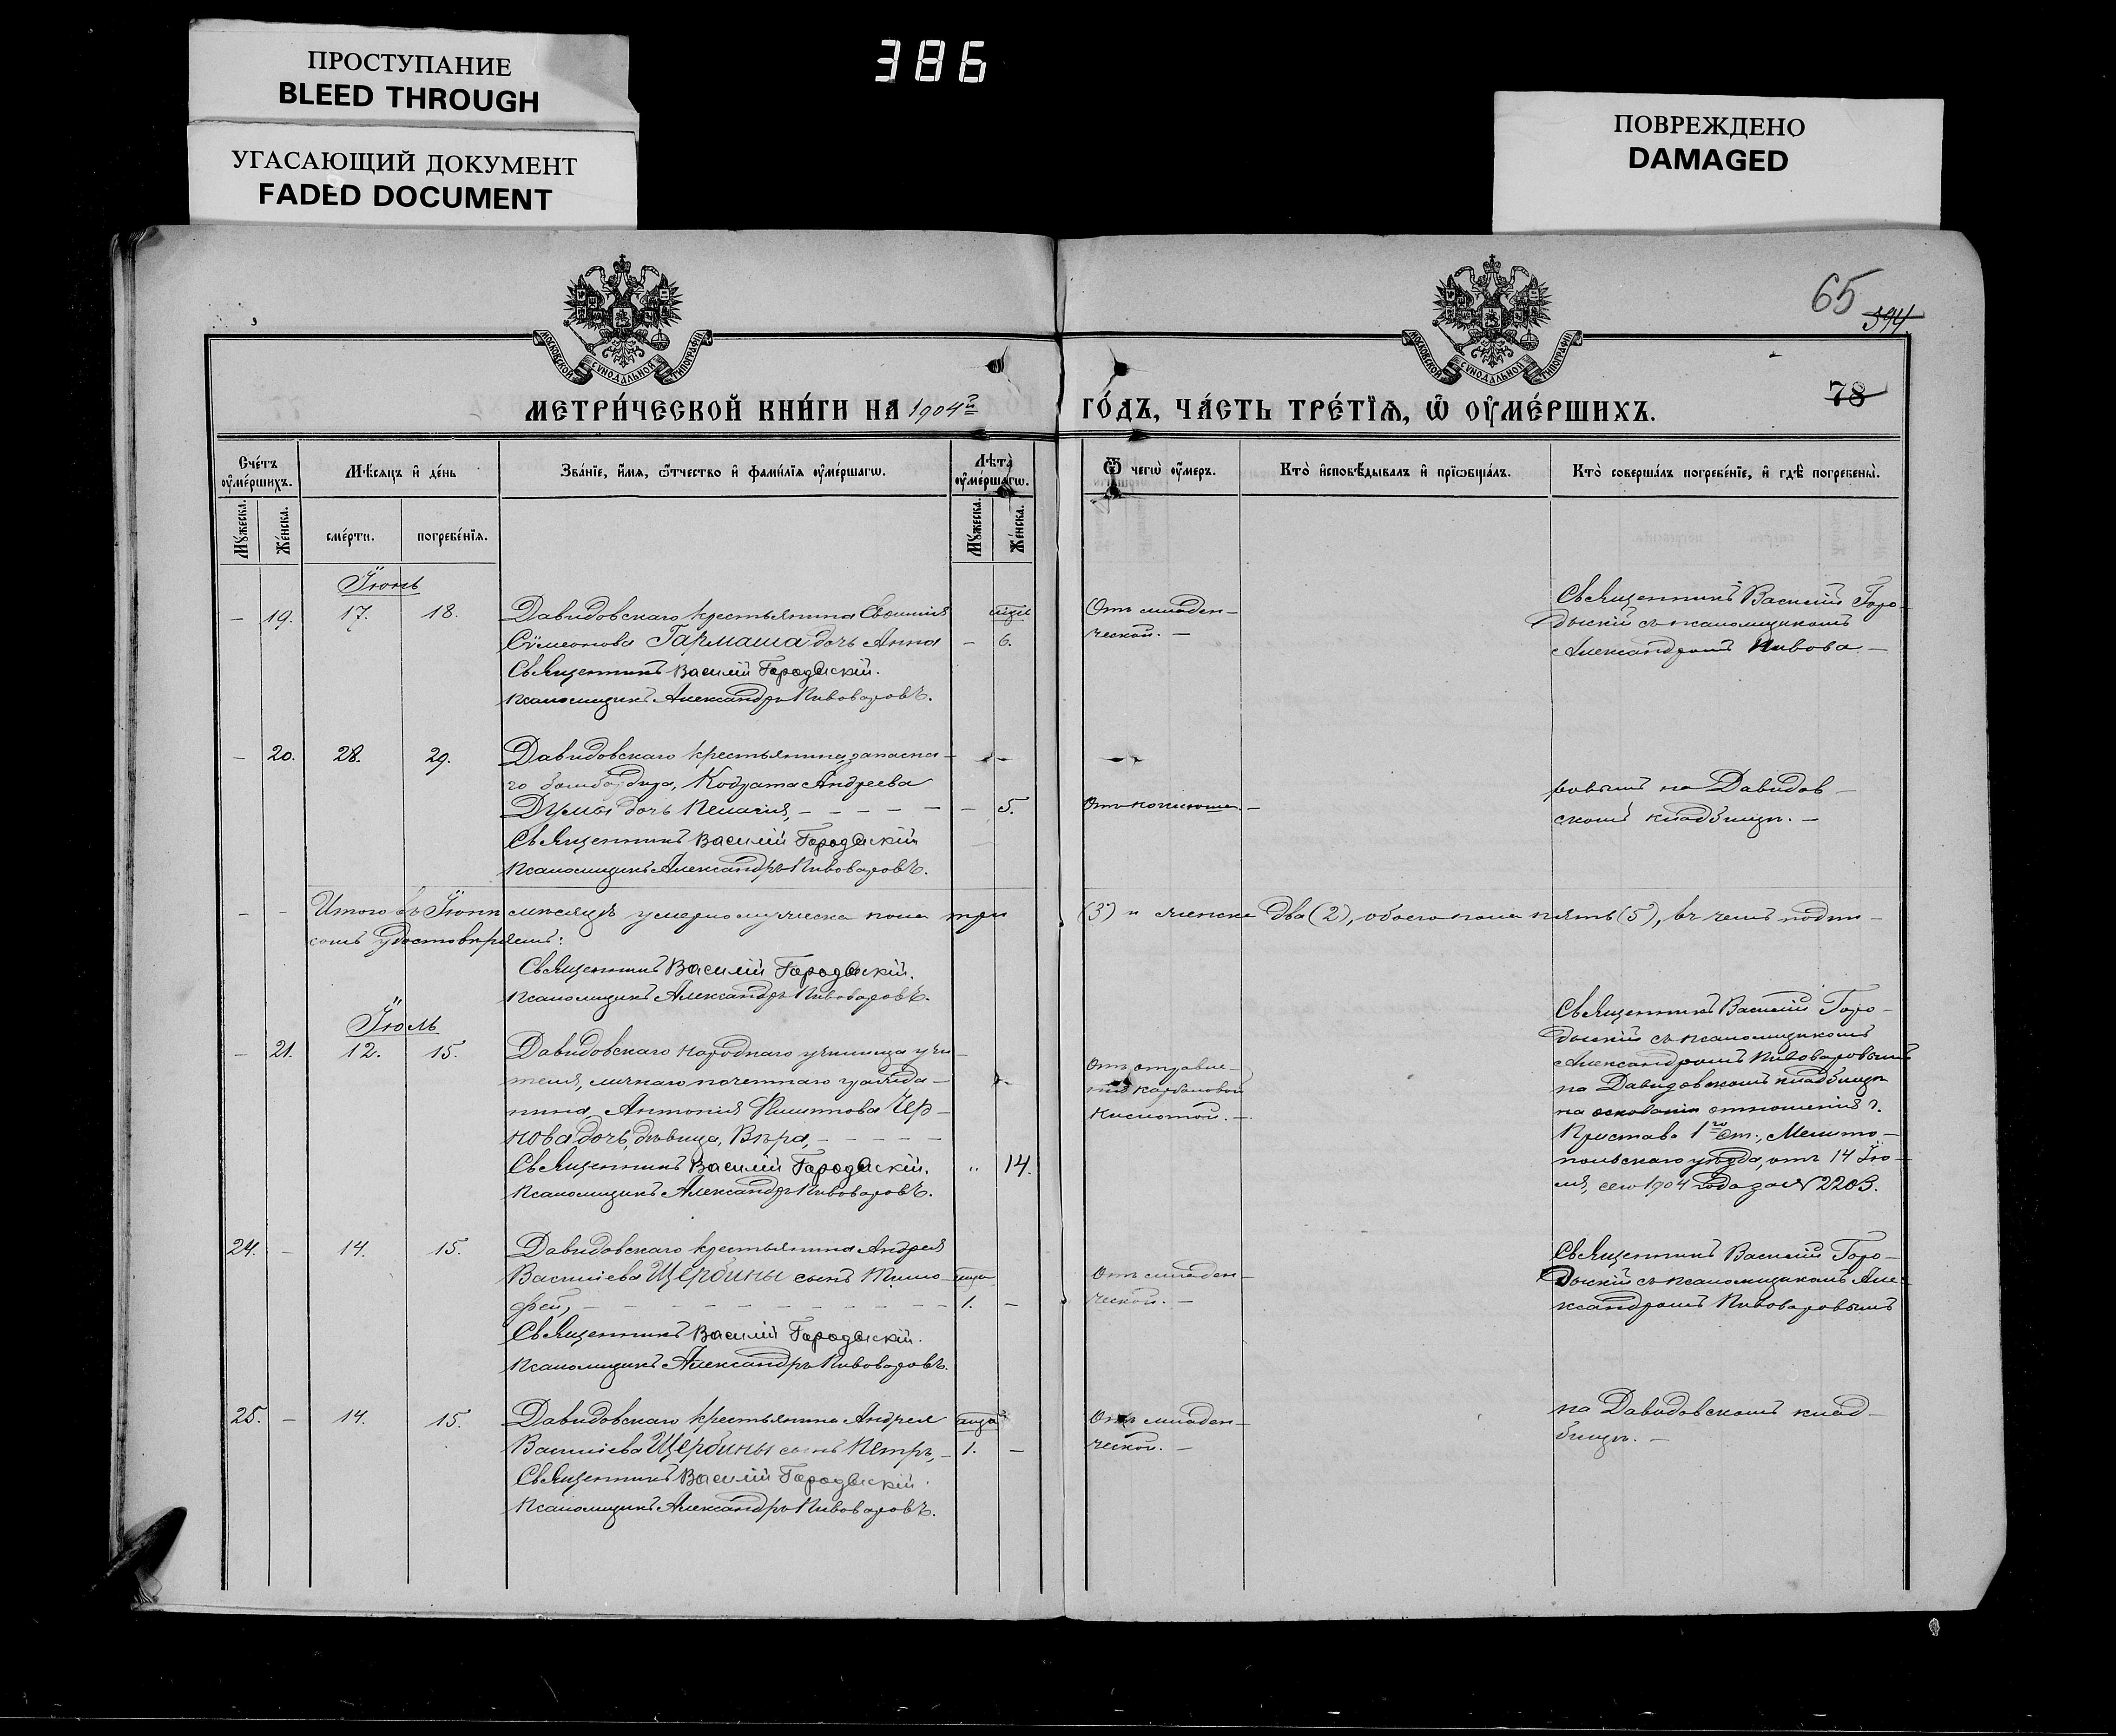 ПРОСТУПАНИЕ
BLEED THROUGH
УГАСАЮЩИЙ ДОКУМЕНТ
FADED DOCUMENT
386
ПОВРЕЖДЕНО
DAMAGED
МОСКОВСКОЙ СѴНОДАЛЬНОЙ ТИПОГРАФІИ
МОСКОВСКОЙ СѴНОДАЛЬНОЙ ТИПОГРАФІИ
65
394
78
МЕТРИ́ЧЕСКОЙ КНИ́ГИ НА 1904й
ГО́ДЪ, ЧА́СТЬ ТРЕ́ТЇѦ, Ѡ҆ ОУ҆МЕ́РШИХЪ.
Сче́тъ оу҆ме́ршихъ.
Мѣ́сѧцъ и҆ де́нь
Зва́нїе, и҆́мѧ, ѻ҆́тчество и҆ фами́лїѧ оу҆ме́ршагѡ.
Лѣ̀та̀ оу҆ме́ршагѡ.
Ѿ чегѡ̀ оу҆́меръ.
Кто̀ и҆сповѣ́дывалъ и҆ прїѡбща́лъ.
Кто̀ соверша́лъ погребе́нїе, и҆ гдѣ̀ погребены̀.
Мꙋ́жеска.
Же́нска.
сме́рти.
погребе́нїѧ.
Мꙋ́жеска.
Же́нска.
Іюнь
— 19. 17. 18.
Давидовскаго крестьянина Евѳимія
Сѵмеонова Гармаша дочь Анна — 6.
Священникъ Василій Городыскій.
Псаломщикъ Александръ Пивоваровъ.
Отъ младен-
ческой. —
Священникъ Василій Горо-
дыскій съ псаломщикомъ
Александромъ Пивова-
— 20. 28. 29.
Давидовскаго крестьянина, запасна-
го бомбардира, Кодрата Андреева
Думы дочь Пелагія, — — — — — 5.
Священникъ Василій Городыскій
Псаломщикъ Александръ Пивоваровъ.
Отъ коклюша. —
ровымъ на Давидов-
скомъ кладбищѣ. —
— — Итого въ Іюнѣ мѣсяцѣ умерло мужеска пола три
(3) и женска два (2), обоего пола пять (5), въ чемъ подпи-
сомъ удостовѣряемъ:
Священникъ Василій Городыскій.
Псаломщикъ Александръ Пивоваровъ.
Іюль
— 21. 12. 15.
Давидовскаго народнаго училища учи-
теля, личнаго почетнаго гражда-
нина, Антонія Филиппова Чер-
нова дочь, дѣвица, Вѣра, — — — —
Священникъ Василій Городыскій. „ 14.
Псаломщикъ Александръ Пивоваровъ.
Отъ отравле-
нія карболовой
кислотой. —
Священникъ Василій Горо-
дыскій съ псаломщикомъ
Александромъ Пивоваровымъ
на Давидовскомъ кладбищѣ
на основаніи отношенія г.
Пристава 1го ст., Мелито-
польскаго уѣзда, отъ 14 Ію-
ля, сего 1904 года за № 2203.
24. — 14. 15.
Давидовскаго крестьянина Андрея
Василіева Щербины сынъ Тимо-
фей, — — — — — — — — — 1. —
Священникъ Василій Городыскій.
Псаломщикъ Александръ Пивоваровъ.
Отъ младен-
ческой. —
Священникъ Василій Горо-
дыскій съ псаломщикомъ Але-
ксандромъ Пивоваровымъ
25. — 14. 15.
Давидовскаго крестьянина Андрея
Василіева Щербины сынъ Петръ, — 1. —
Священникъ Василій Городыскій.
Псаломщикъ Александръ Пивоваровъ.
Отъ младен-
ческой. —
на Давидовскомъ клад-
бищѣ. —